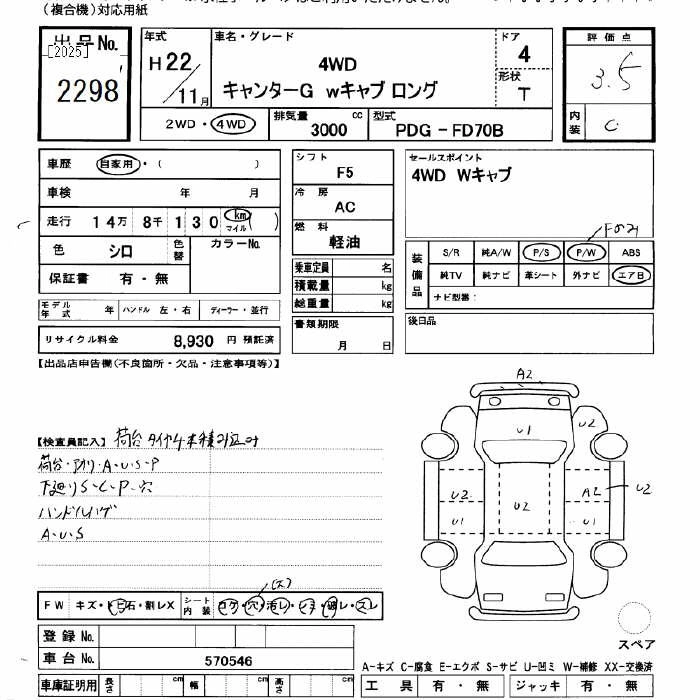 (複合機)対応用紙
出品No.
[2025]
2298
年式
H22/11月
車名・グレード
4WD
キャンターG wキャブ ロング
ドア
4
形状
T
評価点
3.5
内装
C
2WD・4WD
排気量
3000 cc
型式
PDG - FD70B
車歴 自家用・( )
車検 年 月
走行 14万 8千 130 km マイル ( )
色 シロ 色替 カラーNo.
保証書 有・無
シフト
F5
冷房
AC
燃料
軽油
乗車定員 名
積載量 kg
総重量 kg
セールスポイント
4WD Wキャブ
Fのみ
装備品
S/R 純A/W P/S P/W ABS
純TV 純ナビ 革シート 外ナビ エアB
ナビ型番:
モデル年式 年 ハンドル 左・右 ディーラー・並行
リサイクル料金 8,930 円 預託済
書類期限
月 日
後日品
【出品店申告欄(不良箇所・欠品・注意事項等)】
【検査員記入】荷台タイヤ4本積み込み
荷台・アオリ・A・U・S・P
下廻りS・C・P・穴
ハンドルハゲ
A・U・S
A2
U1 U2
U2 U2 A2 U2
U1 U1
スペア
FW キズ・トビ石・割レX シート内装 コゲ・穴・汚レ・シミ・破レ・スレ
(大)
登録No.
車台No. 570546
A-キズ C-腐食 E-エクボ S-サビ U-凹ミ W-補修 XX-交換済
車庫証明用 長さ cm 幅 cm 高さ cm
工具 有・無 ジャッキ 有・無